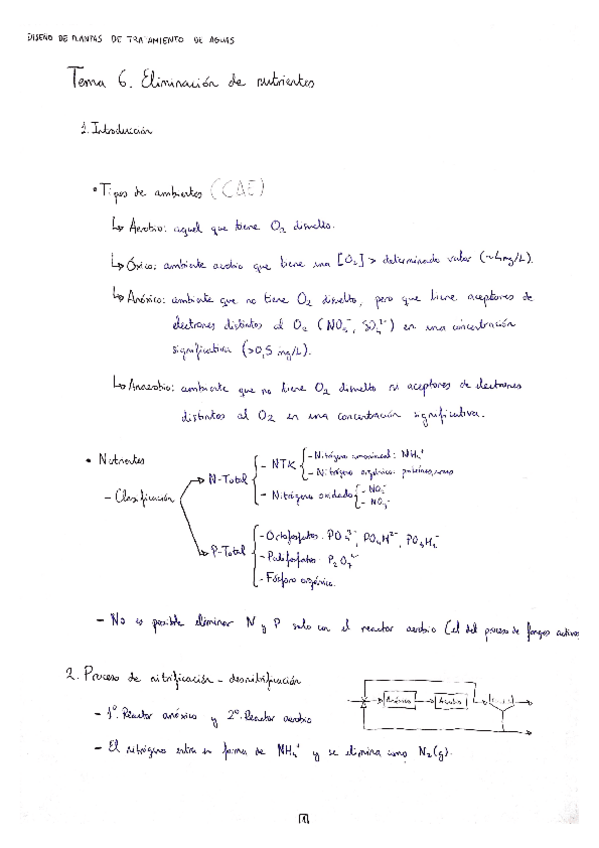 DISEÑO DE PLANTAS DE TRATAMIENTO DE AGUAS
Tema 6. Eliminación de nutrientes
1. Introducción
• Tipos de ambientes (CAE)
↳ Aerobio: aquel que tiene O2 disuelto.
↳ Óxico: ambiente aerobio que tiene una [O2] > determinado valor (~4mg/L).
↳ Anóxico: ambiente que no tiene O2 disuelto, pero que tiene aceptores de
electrones distintos al O2 (NO3-, SO4 2-) en una concentración
significativa (>0,5 mg/L).
↳ Anaerobio: ambiente que no tiene O2 disuelto ni aceptores de electrones
distintos al O2 en una concentración significativa.
• Nutrientes
- Clasificación
N-Total
- NTK
- Nitrógeno amoniacal: NH4+
- Nitrógeno orgánico: proteínas, urea
- Nitrógeno oxidado
- NO2-
- NO3-
P-Total
- Ortofosfatos: PO4 3-, PO4H 2-, PO4H2-
- Polifosfatos: P2O7 4-
- Fósforo orgánico.
- No es posible eliminar N y P solo con el reactor aerobio (el del proceso de fangos activos
2. Proceso de nitrificación - desnitrificación
Anóxico
Aerobio
- 1º. Reactor anóxico y 2º. Reactor aerobio
- El nitrógeno entra en forma de NH4+ y se elimina como N2(g).
1